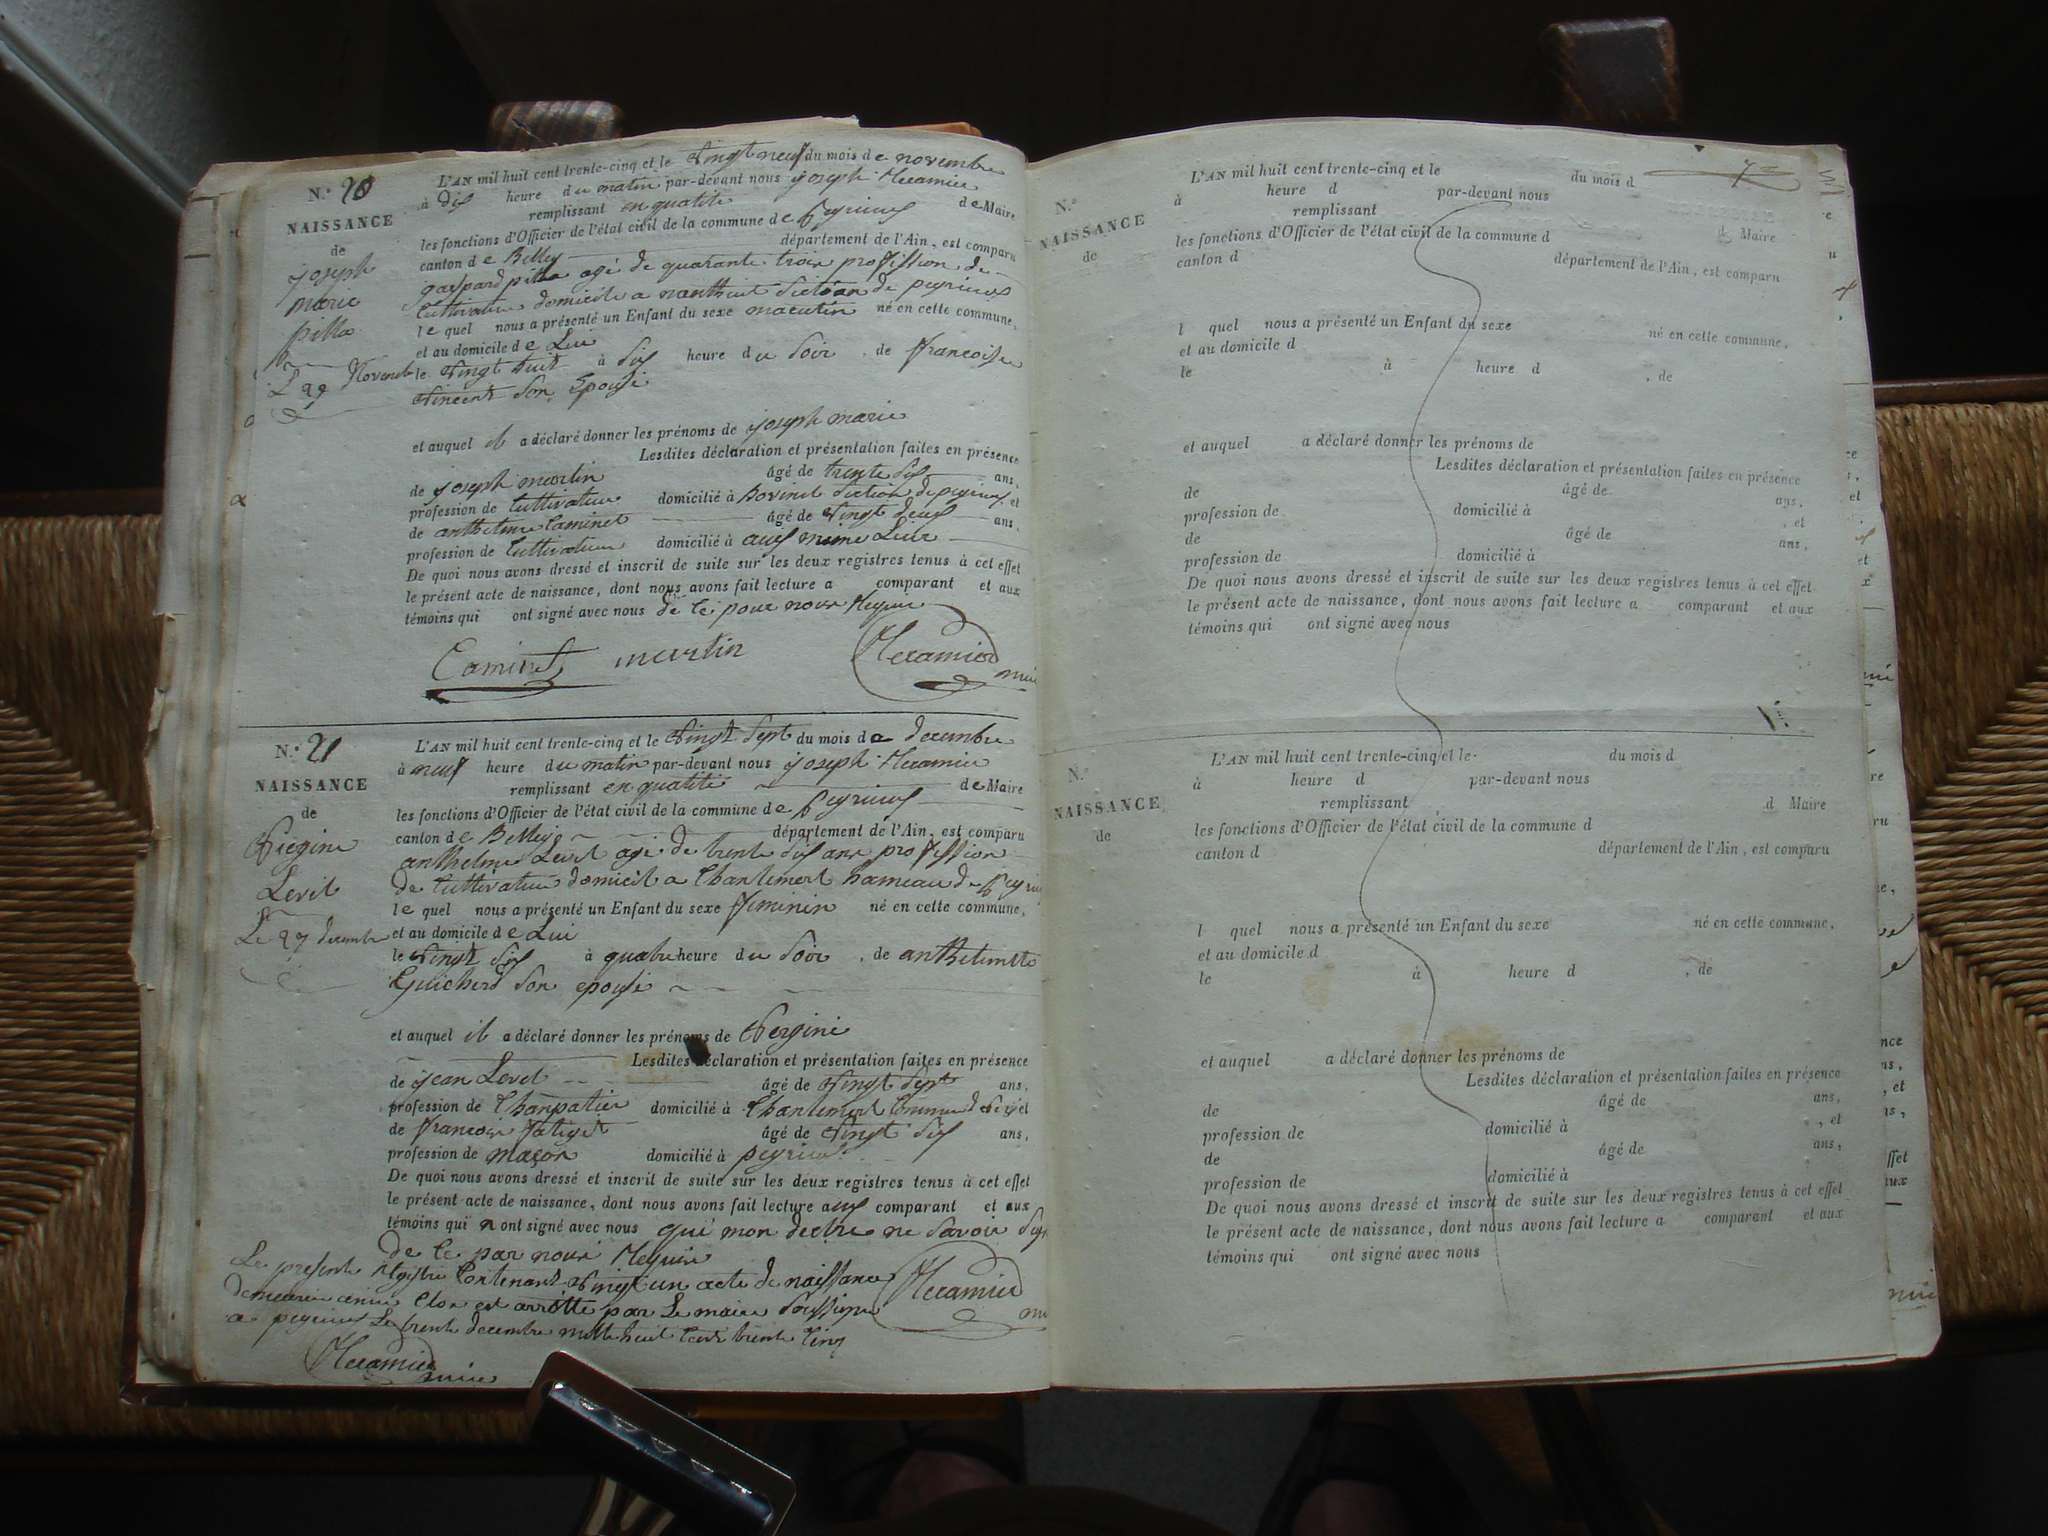 N.° 20
NAISSANCE
de
joseph
marie
pilla
L 29 Novembre
L'AN mil huit cent trente-cinq et le vingt neuf du mois de novembre
à dix heure du matin par-devant nous joseph
remplissant en qualité de Maire
les fonctions d'Officier de l'état civil de la commune de peyrieux
canton de Belley département de l'Ain, est comparu
gaspard pilla agé de quarante trois proffission de
Cultivateur domicile a nanthuit section de peyrieux
le quel nous a présenté un Enfant du sexe masculin né en cette commune,
et au domicile de Lui
le vingt huit à six heure du soir, de francoise
vincent son Epouse
et auquel il a déclaré donner les prénoms de joseph marie
Lesdites déclaration et présentation faites en présence
de joseph martin âgé de trente six ans,
profession de Cultivateur domicilié à Bovinel section de peyrieux et
de anthelme Caminet âgé de vingt deux ans,
profession de Cultivateur domicilié à aux mime Lieu
De quoi nous avons dressé et inscrit de suite sur les deux registres tenus à cet effet
le présent acte de naissance, dont nous avons fait lecture a comparant et aux
témoins qui ont signé avec nous de ce pour nous
Caminet martin
N.° 21
NAISSANCE
de
Levet
Le 27 decembre
L'AN mil huit cent trente-cinq et le vingt sept du mois de decembre
à neuf heure du matin par-devant nous joseph
remplissant en qualité de Maire
les fonctions d'Officier de l'état civil de la commune de peyrieux
canton de Belley département de l'Ain, est comparu
anthelme Levet agé de trente six ans proffission
de Cultivateur domicil a Chantemerl hameau de
le quel nous a présenté un Enfant du sexe feminin né en cette commune,
et au domicile de Lui
le vingt six à quatre heure du soir, de anthelmette
Guicherd son epouse
et auquel il a déclaré donner les prénoms de vergine
Lesdites déclaration et présentation faites en présence
de jean Levet âgé de vingt sept ans,
profession de Charpatier domicilié à Chantemerl Commune de et
de francois âgé de vingt six ans,
profession de maçon domicilié à peyrieux
De quoi nous avons dressé et inscrit de suite sur les deux registres tenus à cet effet
le présent acte de naissance, dont nous avons fait lecture aux comparant et aux
témoins qui n ont signé avec nous qui mon declre ne savoir
de ce par nous
Le presente registre Contenant vingt un acte de naissance
Clos est arrötte par Le maire soussigne
a peyrieux Le trente decembre mille huit Cent trente Cinq
N.°
NAISSANCE
de
L'AN mil huit cent trente-cinq et le du mois d
à heure d par-devant nous
remplissant d Maire
les fonctions d'Officier de l'état civil de la commune d
canton d département de l'Ain, est comparu
l quel nous a présenté un Enfant du sexe né en cette commune,
et au domicile d
le à heure d , de
et auquel a déclaré donner les prénoms de
Lesdites déclaration et présentation faites en présence
de âgé de ans,
profession de domicilié à , et
de âgé de ans,
profession de domicilié à
De quoi nous avons dressé et inscrit de suite sur les deux registres tenus à cet effet
le présent acte de naissance, dont nous avons fait lecture a comparant et aux
témoins qui ont signé avec nous
N.°
NAISSANCE
de
L'AN mil huit cent trente-cinq et le du mois d
à heure d par-devant nous
remplissant d Maire
les fonctions d'Officier de l'état civil de la commune d
canton d département de l'Ain, est comparu
l quel nous a présenté un Enfant du sexe né en cette commune,
et au domicile d
le à heure d , de
et auquel a déclaré donner les prénoms de
Lesdites déclaration et présentation faites en présence
de âgé de ans,
profession de domicilié à , et
de âgé de ans,
profession de domicilié à
De quoi nous avons dressé et inscrit de suite sur les deux registres tenus à cet effet
le présent acte de naissance, dont nous avons fait lecture a comparant et aux
témoins qui ont signé avec nous